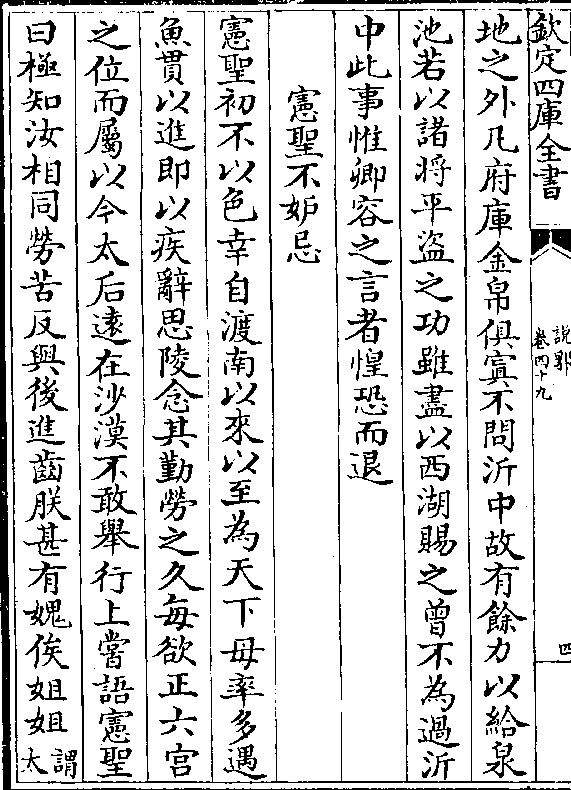 欽定四庫全書
說郛
卷四十九
四
地之外凡府庫金帛俱寘不問沂中故有餘力以給泉
池若以諸将平盜之功雖盡以西湖賜之曾不為過沂
中此事惟卿容之言者惶恐而退
憲聖不妒忌
憲聖初不以色幸自渡南以來以至為天下母率多遇
魚貫以進即以疾辭思陵念其勤勞之久每欲正六宮
之位而屬以今太后逺在沙漠不敢舉行上嘗語憲聖
曰極知汝相同勞苦反與後進齒朕甚有媿俟姐姐謂
太